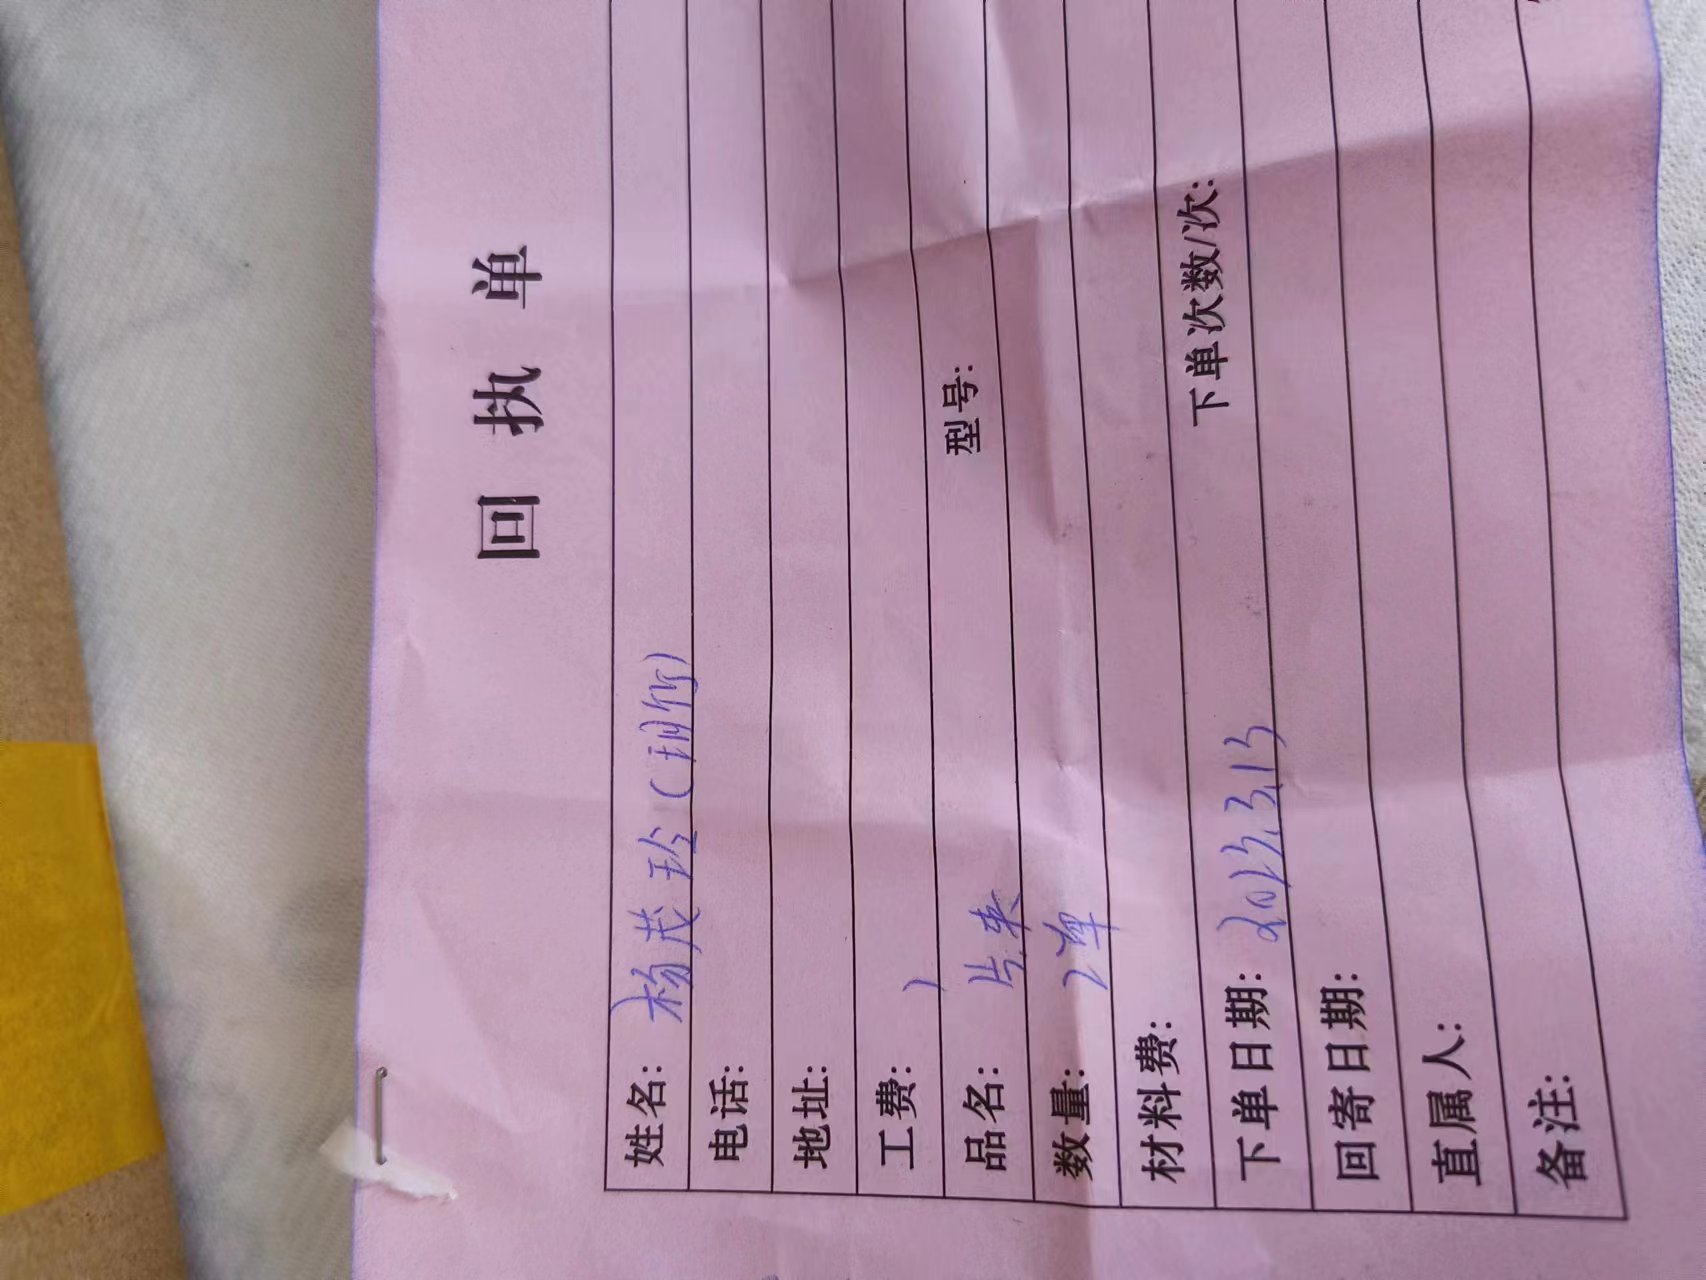 回执单
姓名: 杨茂玲
电话:
地址:
工费:
品名: 片夹 型号:
数量: 2单
材料费:
下单日期: 2023.3.13 下单次数/次:
回寄日期:
直属人:
备注: